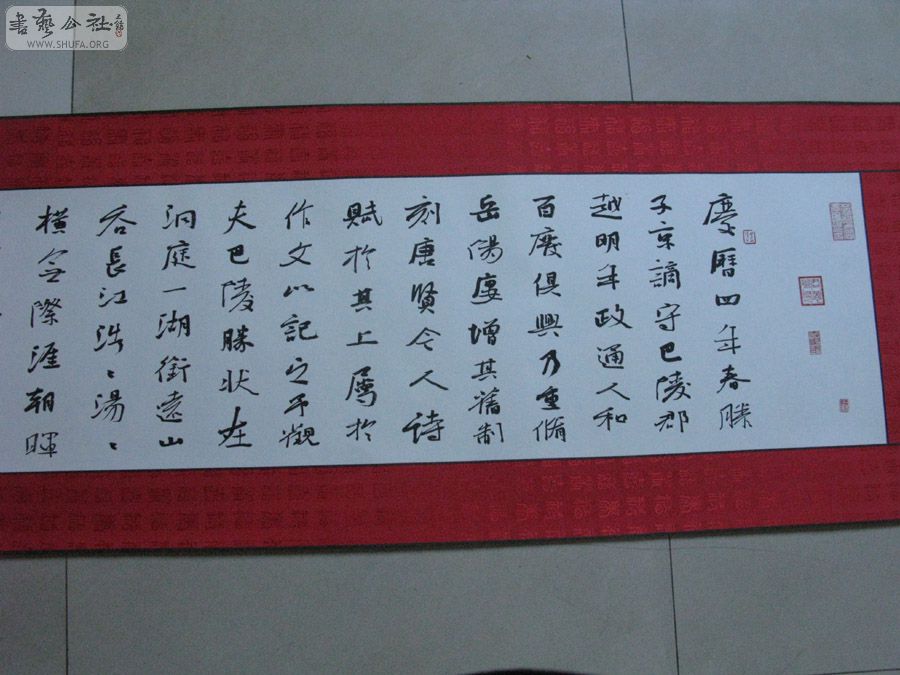 書藝公社
WWW.SHUFA.ORG
慶曆四年春滕
子京謫守巴陵郡
越明年政通人和
百廢俱興乃重脩
岳陽樓增其舊制
刻唐賢今人詩
賦於其上屬於
作文以記之予觀
夫巴陵勝状在
洞庭一湖銜遠山
吞長江浩〻湯〻
橫無際涯朝暉